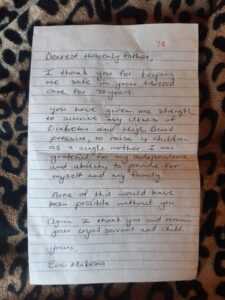 78
Dearest Heavenly Father,
I thank you for keeping
me safe in your blessed
care for 78 years
You have given me strength
to survive my illness of
Diabetes and High Blood
pressure, to raise 14 children
as a single mother. I am
grateful for my independence
and ability to provide for
myself and my family.
None of this would have
been possible without you
Again I thank you and remain
your loyal servant and child.
yours,